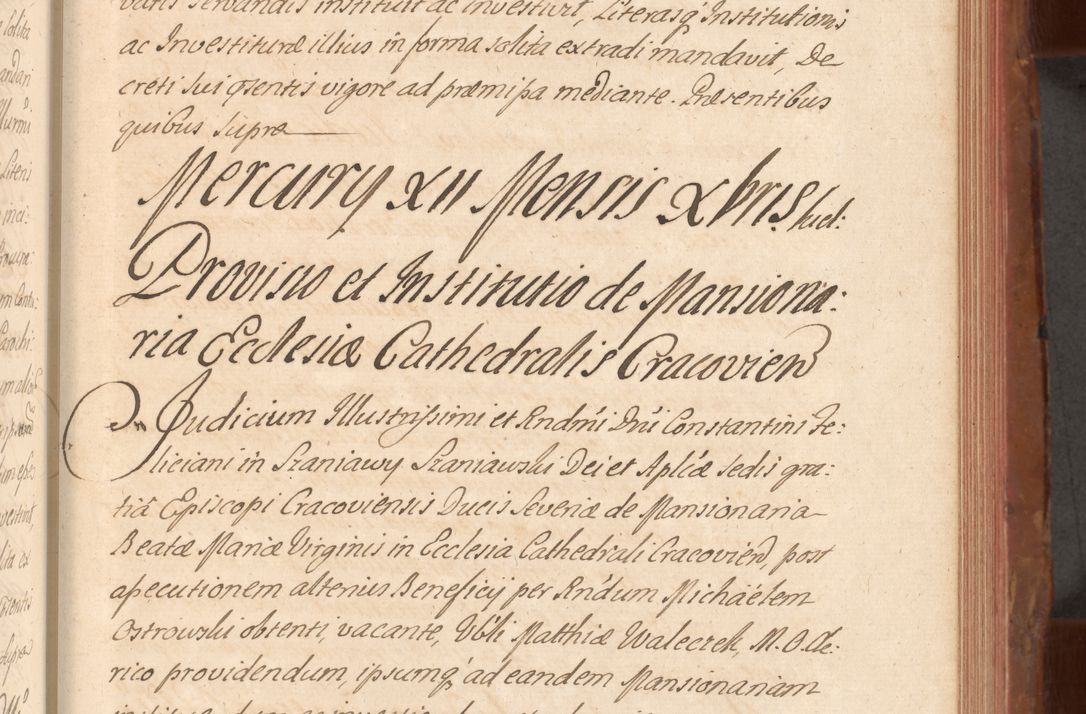 varis servandis instituit ac investivit, Literasq́ Institutionis
ac Investituræ illius in forma solita extradi mandavit, De
creti sui pñsentis vigore ad præmissa mediante. Præsentibus
quibus supra
Mercurÿ XII Mensis Xbris.
Provisio et Institutio de Mansiona:
ria Ecclesiæ Cathedralis Cracovien
In Judicium Illustrissimi et Rndmi Dni Constantini Fe:
liciani in Szaniawy Szaniawski Dei et Aplicæ sedis gra:
tiâ Episcopi Cracoviensis Ducis Severiæ de Mansionaria
Beatæ Mariæ Virginis in Ecclesia Cathedrali Cracovien, post
assecutionem alterius Beneficÿ per Rndum Michaëlem
Ostrowski obtenti, vacante, Vbli Matthiæ Waleczek, M. O. Cle:
rico providendum, ipsumq́ ad eandem Mansionariam